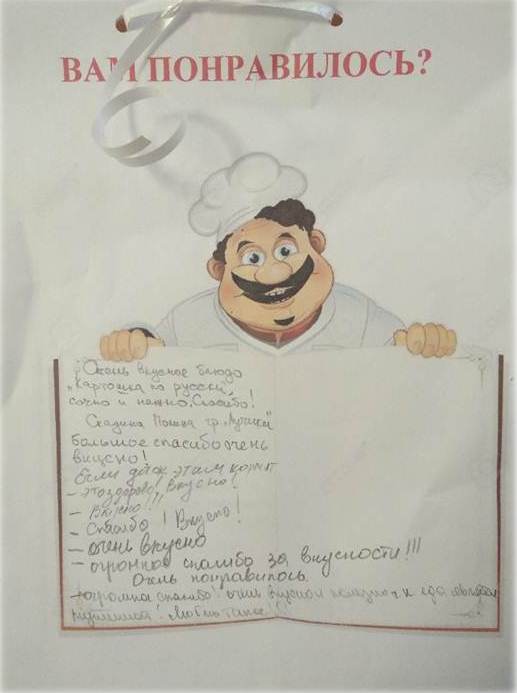 ВАМ ПОНРАВИЛОСЬ?
Очень вкусное блюдо
"Картошка по русски",
сочно и нежно. Спасибо!
Полина гр. "Лучики"
Большое спасибо очень
вкусно!
Если деток этам кормят
- это здорово! Вкусно!
- Вкусно!!!
- Спасибо! Вкусно!
- очень вкусно
- огромное спасибо за вкусности!!!
Очень понравилось.
- огромное спасибо! очень вкусно и еда